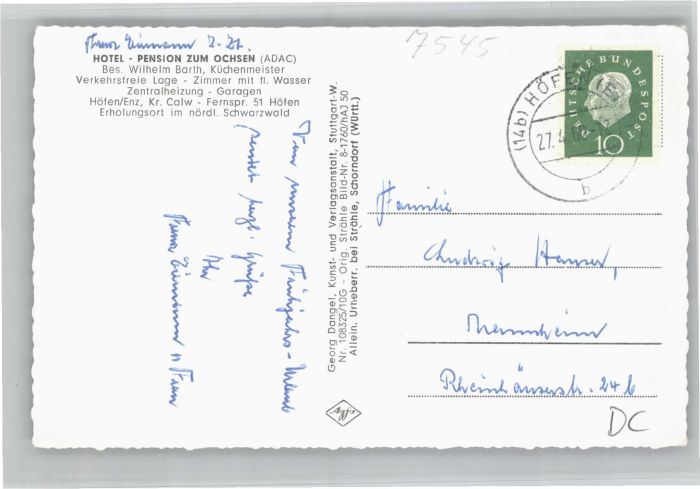 7545
HOTEL - PENSION ZUM OCHSEN (ADAC)
Bes. Wilhelm Barth, Küchenmeister
Verkehrsfreie Lage - Zimmer mit fl. Wasser
Zentralheizung - Garagen
Höfen/Enz, Kr. Calw - Fernspr. 51 Höfen
Erholungsort im nördl. Schwarzwald
Von unserem Frühjahrs-Urlaub
sendet herzl. Grüße
Ihr
Georg Dangel, Kunst- und Verlagsanstalt, Stuttgart-W.
Nr. 108325/10G - Orig. Strähle Bild-Nr. 8-1760/hAJ 50
Allein. Urheberr. bei Strähle, Schorndorf (Württ.)
DEUTSCHE BUNDESPOST
10
(14b) HÖFEN
27.4.
b
Familie
Ludwig Hauser,
Mannheim
Rheinhäuserstr. 24b
DC